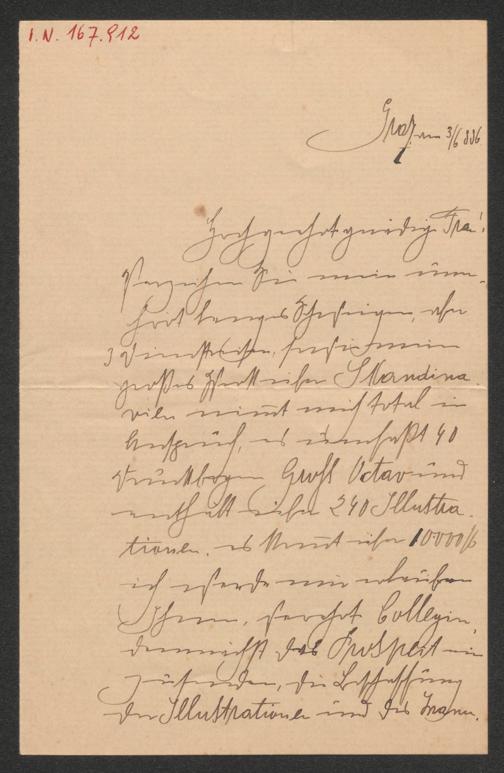 I.N. 167.912
Graz, am 3/6 886
Hochgeehrte gnädige Frau!
Verzeihen Sie mein uner-
hört langes Schweigen, aber
3 Dienstreisen, sowie mein
großes Werk über Skandina-
vien nimmt mich total in
Anspruch, es umfaßt 40
Druckbogen Groß Octav und
enthält über 240 Illustra-
tionen. es kommt über 10000 f
ich werde mir erlauben
Ihnen, verehrte Collegin,
demnächst das Prospect ein
zusenden, die Beschaffung
der Illustrationen und des